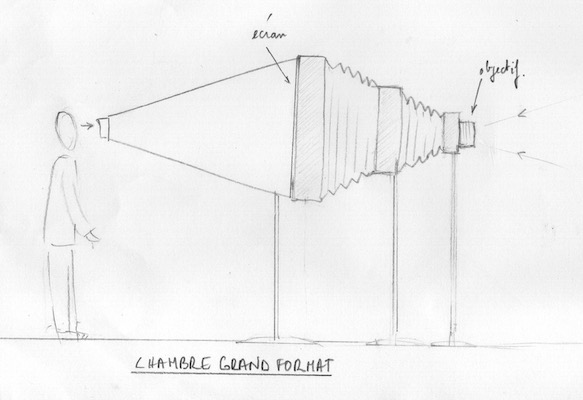 écran
objectif.
CHAMBRE GRAND FORMAT